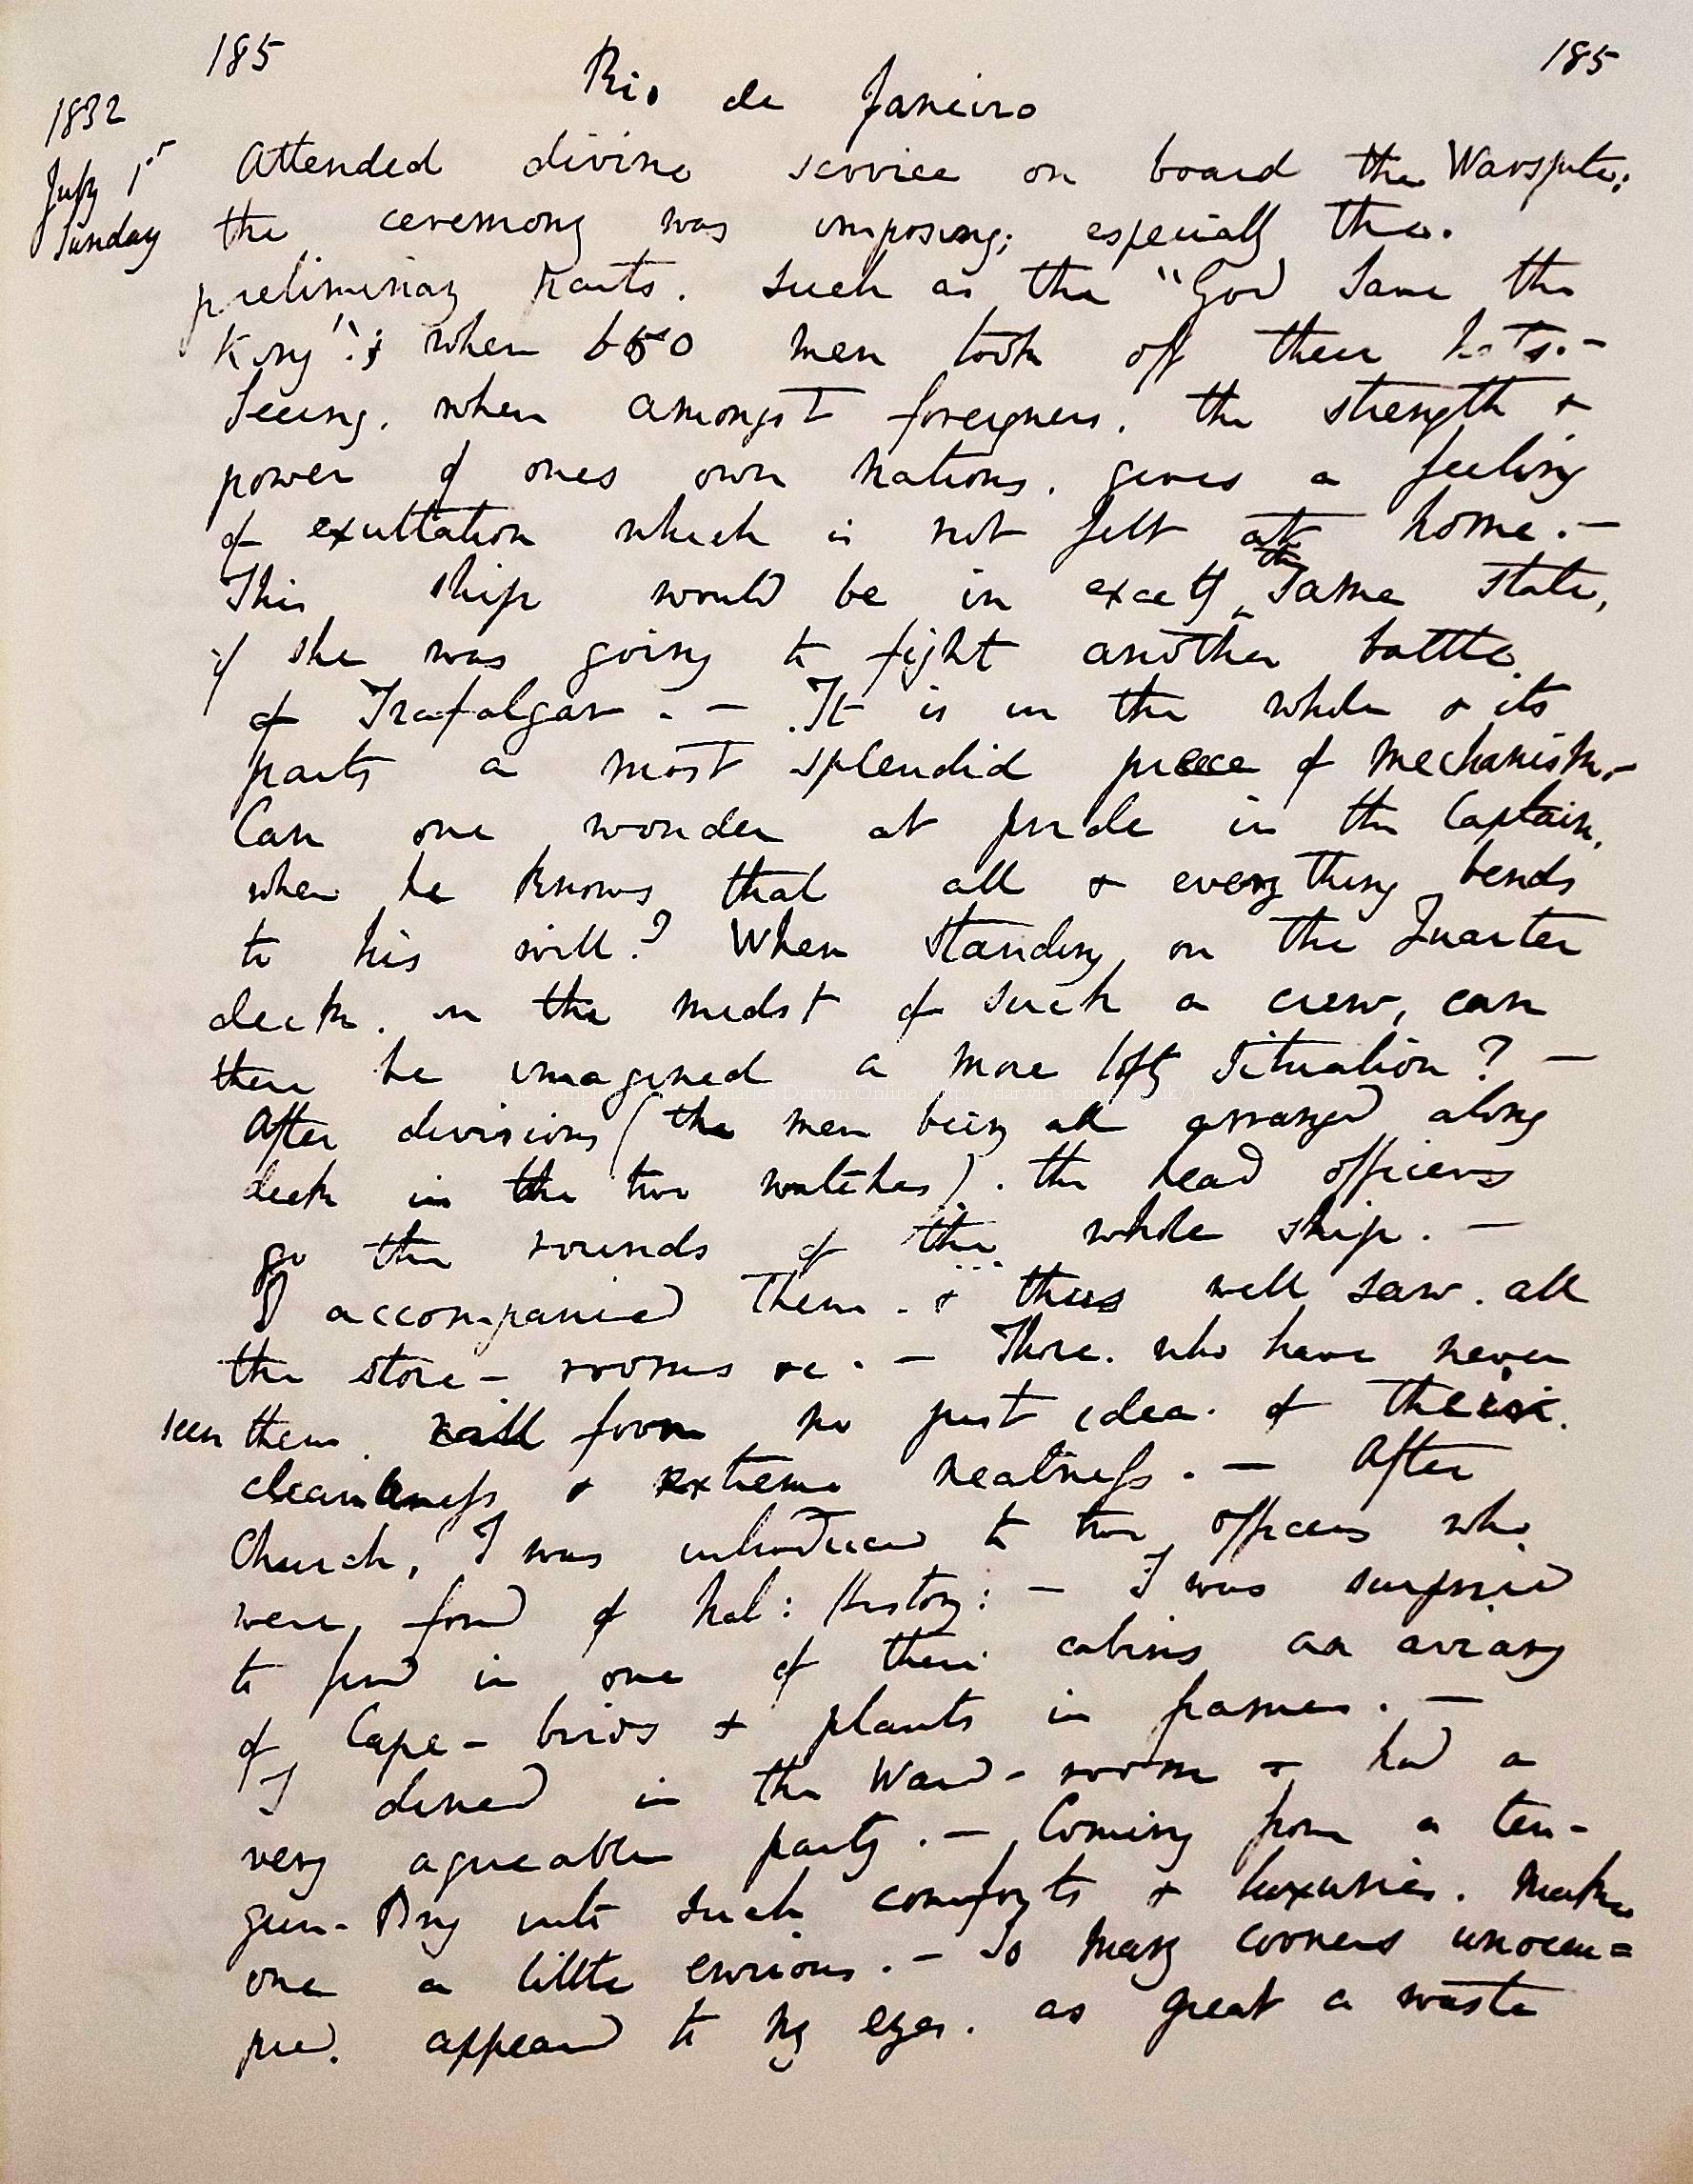 185 Rio de Janeiro 185
1832
July 1st
Sunday
Attended divine service on board the Warspite;
the ceremony was imposing; especially the
preliminary parts. such as the "God save the
King"; when 650 men took off their hats.—
Seeing, when amongst foreigners, the strength &
power of ones own Nations, gives a feeling
of exultation which is not felt at home.—
This ship would be in exactly the same state,
if she was going to fight another battle
of Trafalgar.— It is in the whole & its
parts a most splendid piece of mechanism.—
Can one wonder at pride in the Captain,
when he knows that all & every thing bends
to his will? When standing on the Quarter
deck, in the midst of such a crew, can
there be imagined a more lofty situation? —
After divisions (the men being all arranged along
deck in the two watches). the head officers
go the rounds of the whole ship.—
I accompanied them. & thus well saw. all
the store-rooms &c.— Those. who have never
seen them, will form no just idea. of their.
cleanliness & extreme neatness.— After
Church, I was introduced to two officers who
were, fond of Nat: History:— I was surprised
to find in one of their cabins an aviary
of Cape-birds & plants in frames.—
I dined in the Ward-room & had a
very agreeable party.— Coming from a ten-
gun-Brig into such comforts & luxuries. makes
one a little envious.— So many corners unoccu=
pied, appeared to my eyes. as great a waste